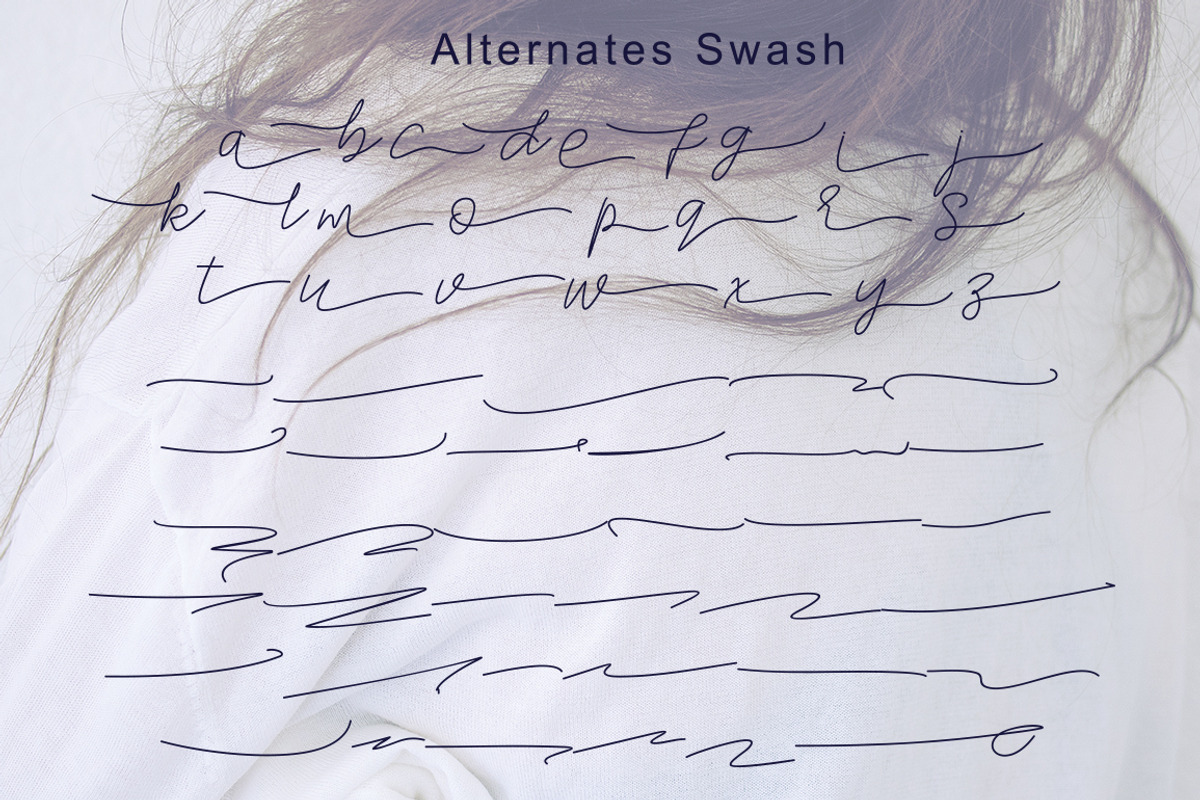 Alternates Swash
a b c d e f g i j
k l m o p q r s
t u v w x y z